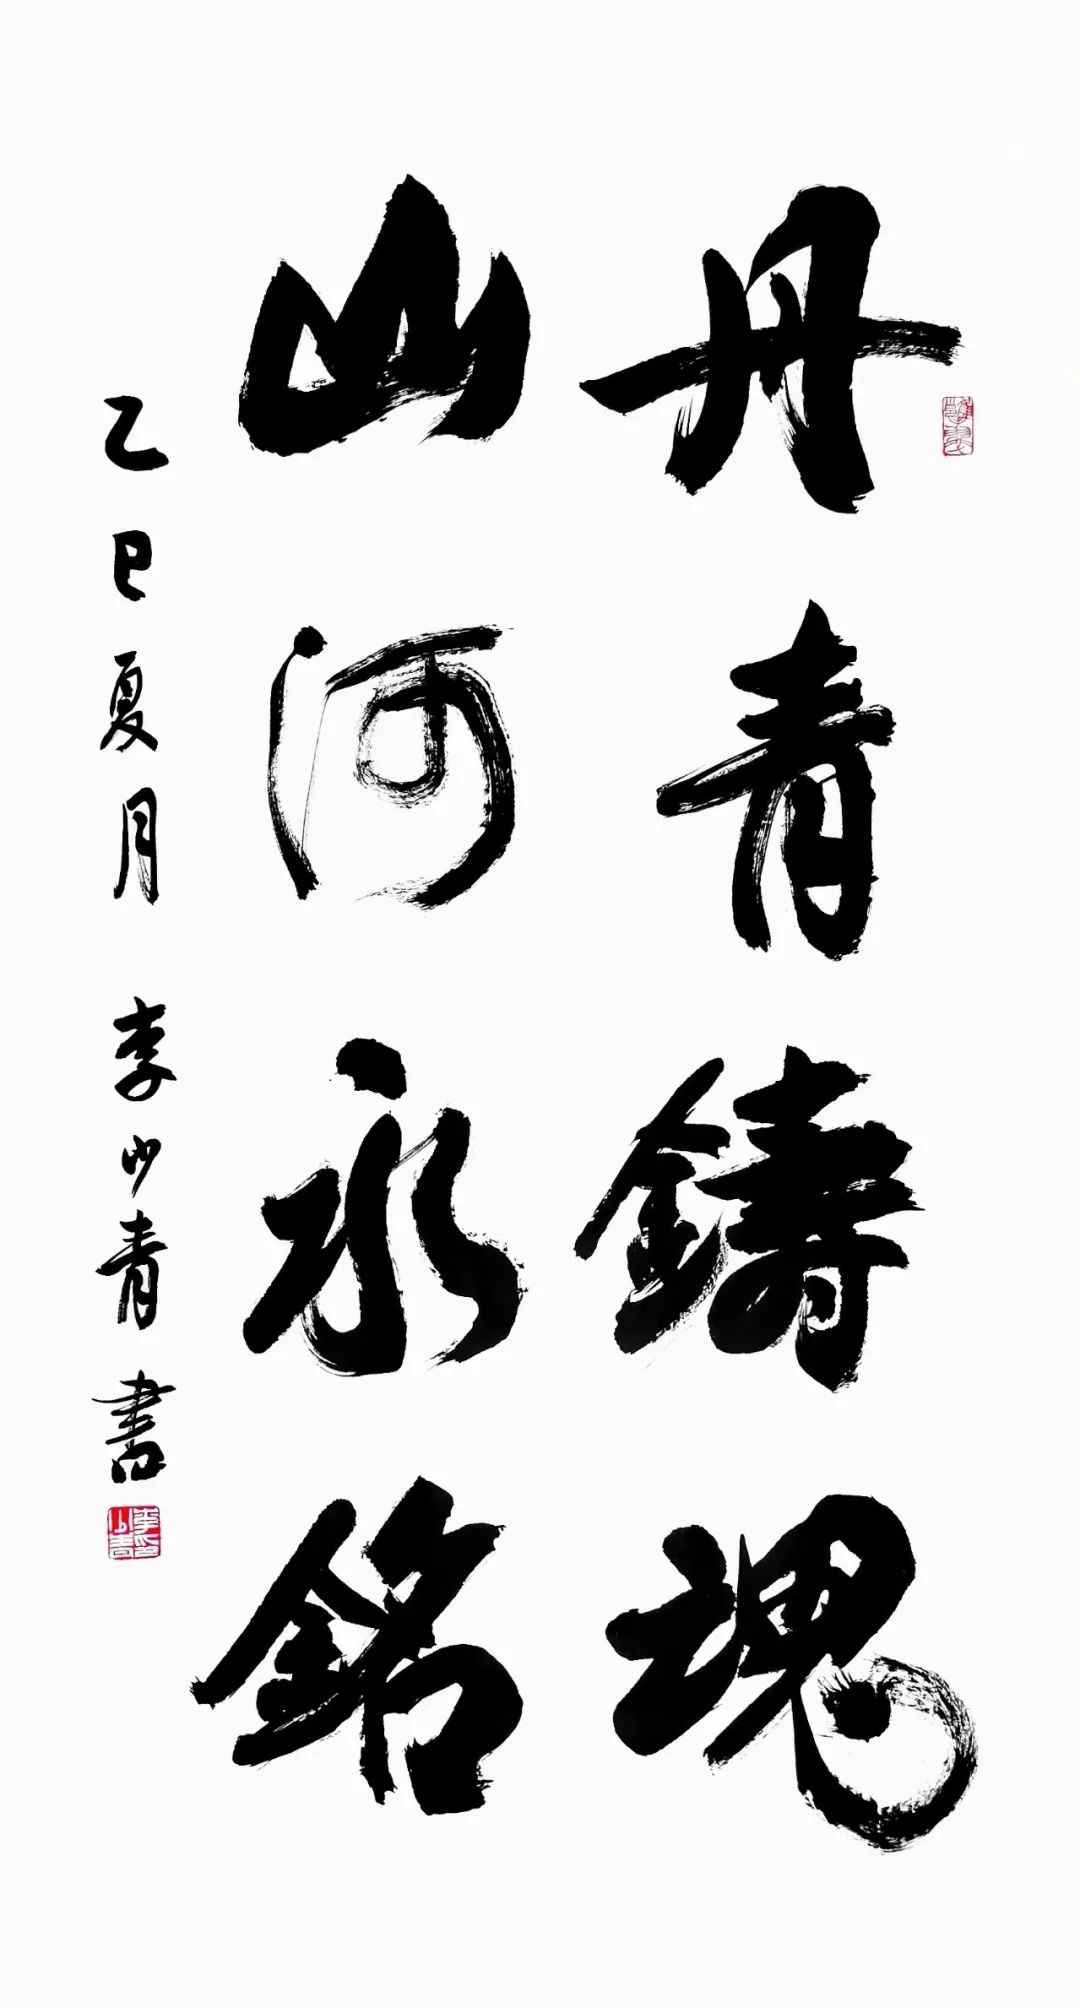 丹青鑄魂
山河永銘
乙巳夏月 李少青 書